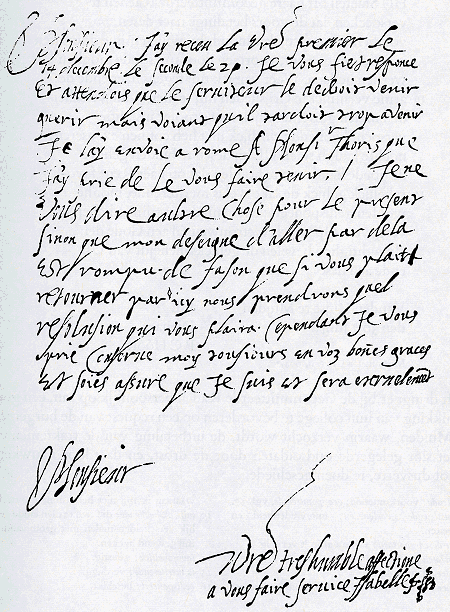 Monsieur. J'ay receu la vre premier le
14 decembre le seconde le 20. Je vous fie responce
Et attendois que le serviteur le deboit venir
querir mais voiant qu'il tardoit trop a venir
Je l'ay envoie a rome A Monsr Thoris que
J'ay prie de le vous faire tenir. / Je ne
vous dire aultre chose pour le present
sinon que mon deseigne d'aller par dela
Est rompu de fason que si vous plaitt
retourner par icy nous prendrons quel
resolusion qui vous plaira. Cependant Je vous
prie Conserve moy tousiours en voz bones graces
Et soies assure que Je suis et sera eternelemēt
Monsieur
Vre treshumble affectione
a vous faire service Isabelle